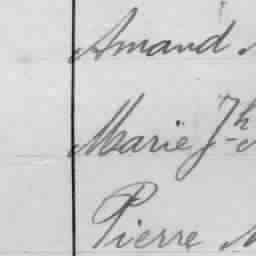 Amand
Marie Jh
Pierre